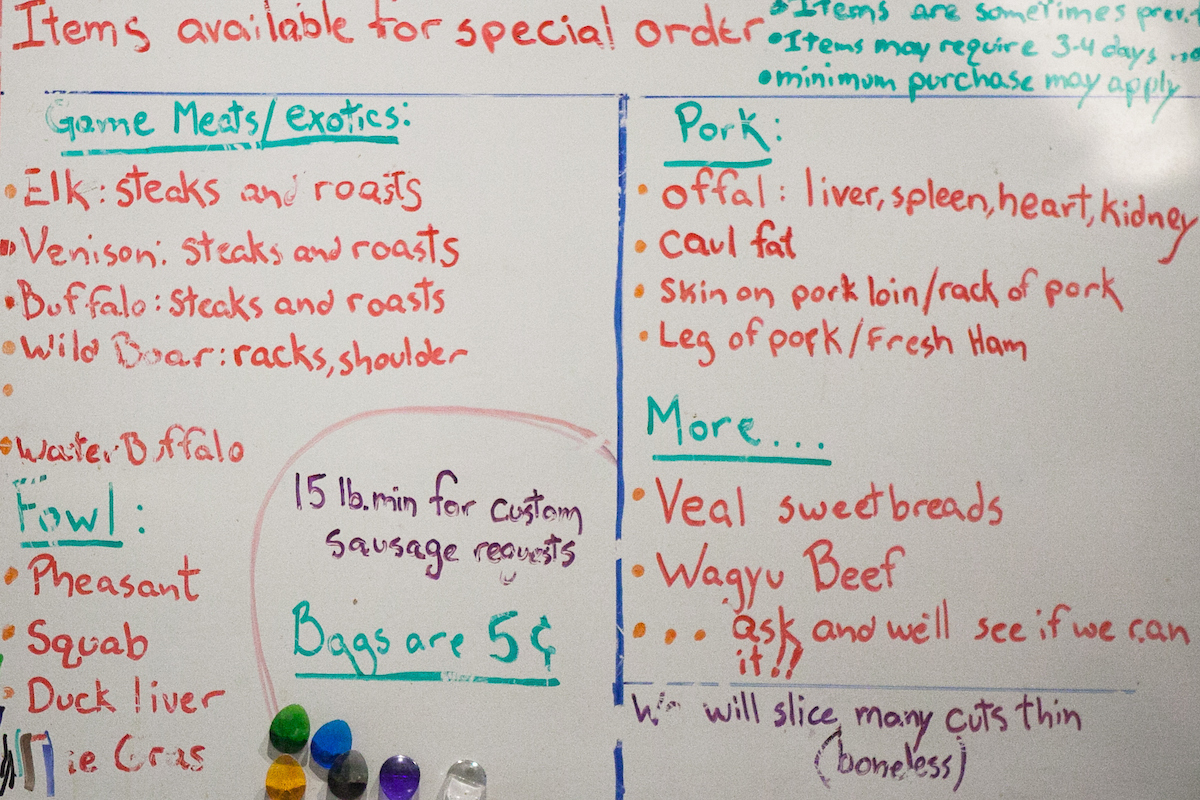 Items available for special order
• Items are sometimes
• Items may require 3-4 days
• minimum purchase may apply
Game Meats/exotics:
• Elk: steaks and roasts
• Venison: steaks and roasts
• Buffalo: steaks and roasts
• Wild Boar: racks, shoulder
•
• Water Buffalo
Fowl:
• Pheasant
• Squab
• Duck liver
Gras
15 lb. min for custom
sausage requests
Bags are 5¢
Pork:
• offal: liver, spleen, heart, kidney
• Caul fat
• Skin on pork loin/rack of pork
• Leg of pork/Fresh Ham
More...
• Veal sweetbreads
• Wagyu Beef
• • • ask and we'll see if we can
it!!
will slice many cuts thin
(boneless)